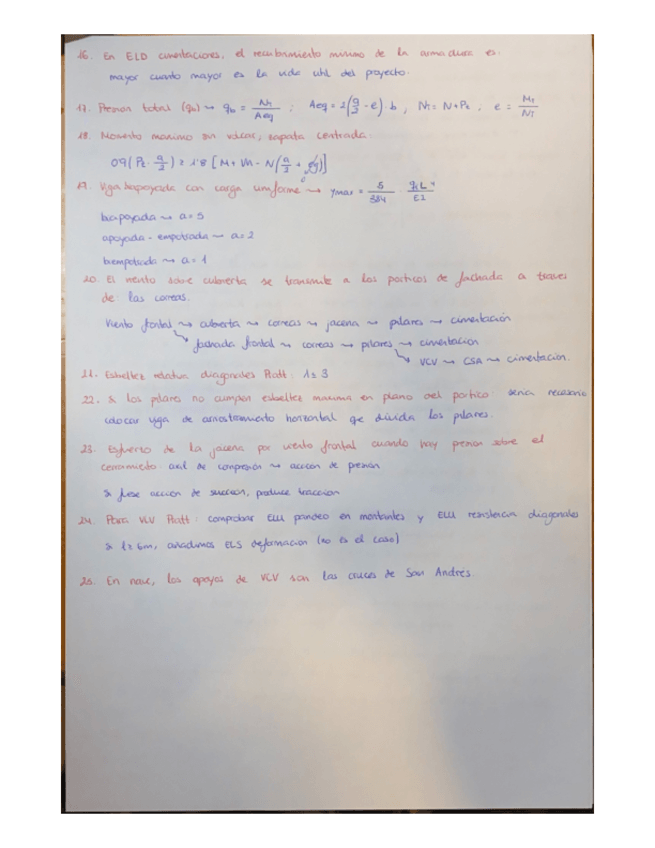 16. En ELD cimentaciones, el recubrimiento mínimo de la armadura es:
mayor cuanto mayor es la vida útil del proyecto.
17. Presion total (qb) → qb = NT / Aeq ; Aeq = 2(a/2 - e) · b , NT = N + Pz ; e = MT / NT
18. Momento maximo sin volcar, zapata centrada:
0'9 (Pz · a/2) ≥ 1'8 [M + Vh - N(a/2 +
19. Viga biapoyada con carga uniforme → ymax = 5/384 · qL⁴/EI
biapoyada → a = 5
apoyada - empotrada → a = 2
biempotrada → a = 1
20. El viento sobre cubierta se transmite a los porticos de fachada a traves
de: las correas.
Viento frontal → cubierta → correas → jacena → pilares → cimentación
→ fachada frontal → correas → pilares → cimentacion
→ VCV → CSA → cimentacion.
21. Esbeltez relativa diagonales Pratt: 1 ≤ 3
22. Si los pilares no cumplen esbeltez maxima en plano del portico: seria necesario
colocar viga de arriostramiento horizontal qe divida los pilares.
23. Esfuerzo de la jacena por viento frontal cuando hay presion sobre el
cerramiento: axil de compresión → accion de presion
Si fuese accion de succion, produce traccion
24. Para VCV Pratt: comprobar ELU pandeo en montantes y ELU resistencia diagonales
Si l ≥ 6m, añadimos ELS deformacion (no es el caso)
25. En nave, los apoyos de VCV son las cruces de San Andres.